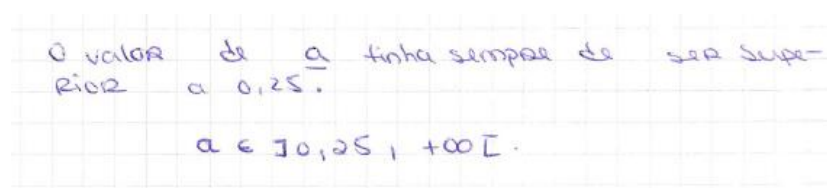 O valor de a tinha sempre de ser supe-
rior a 0,25.
a ∈ ]0,25, +∞[.